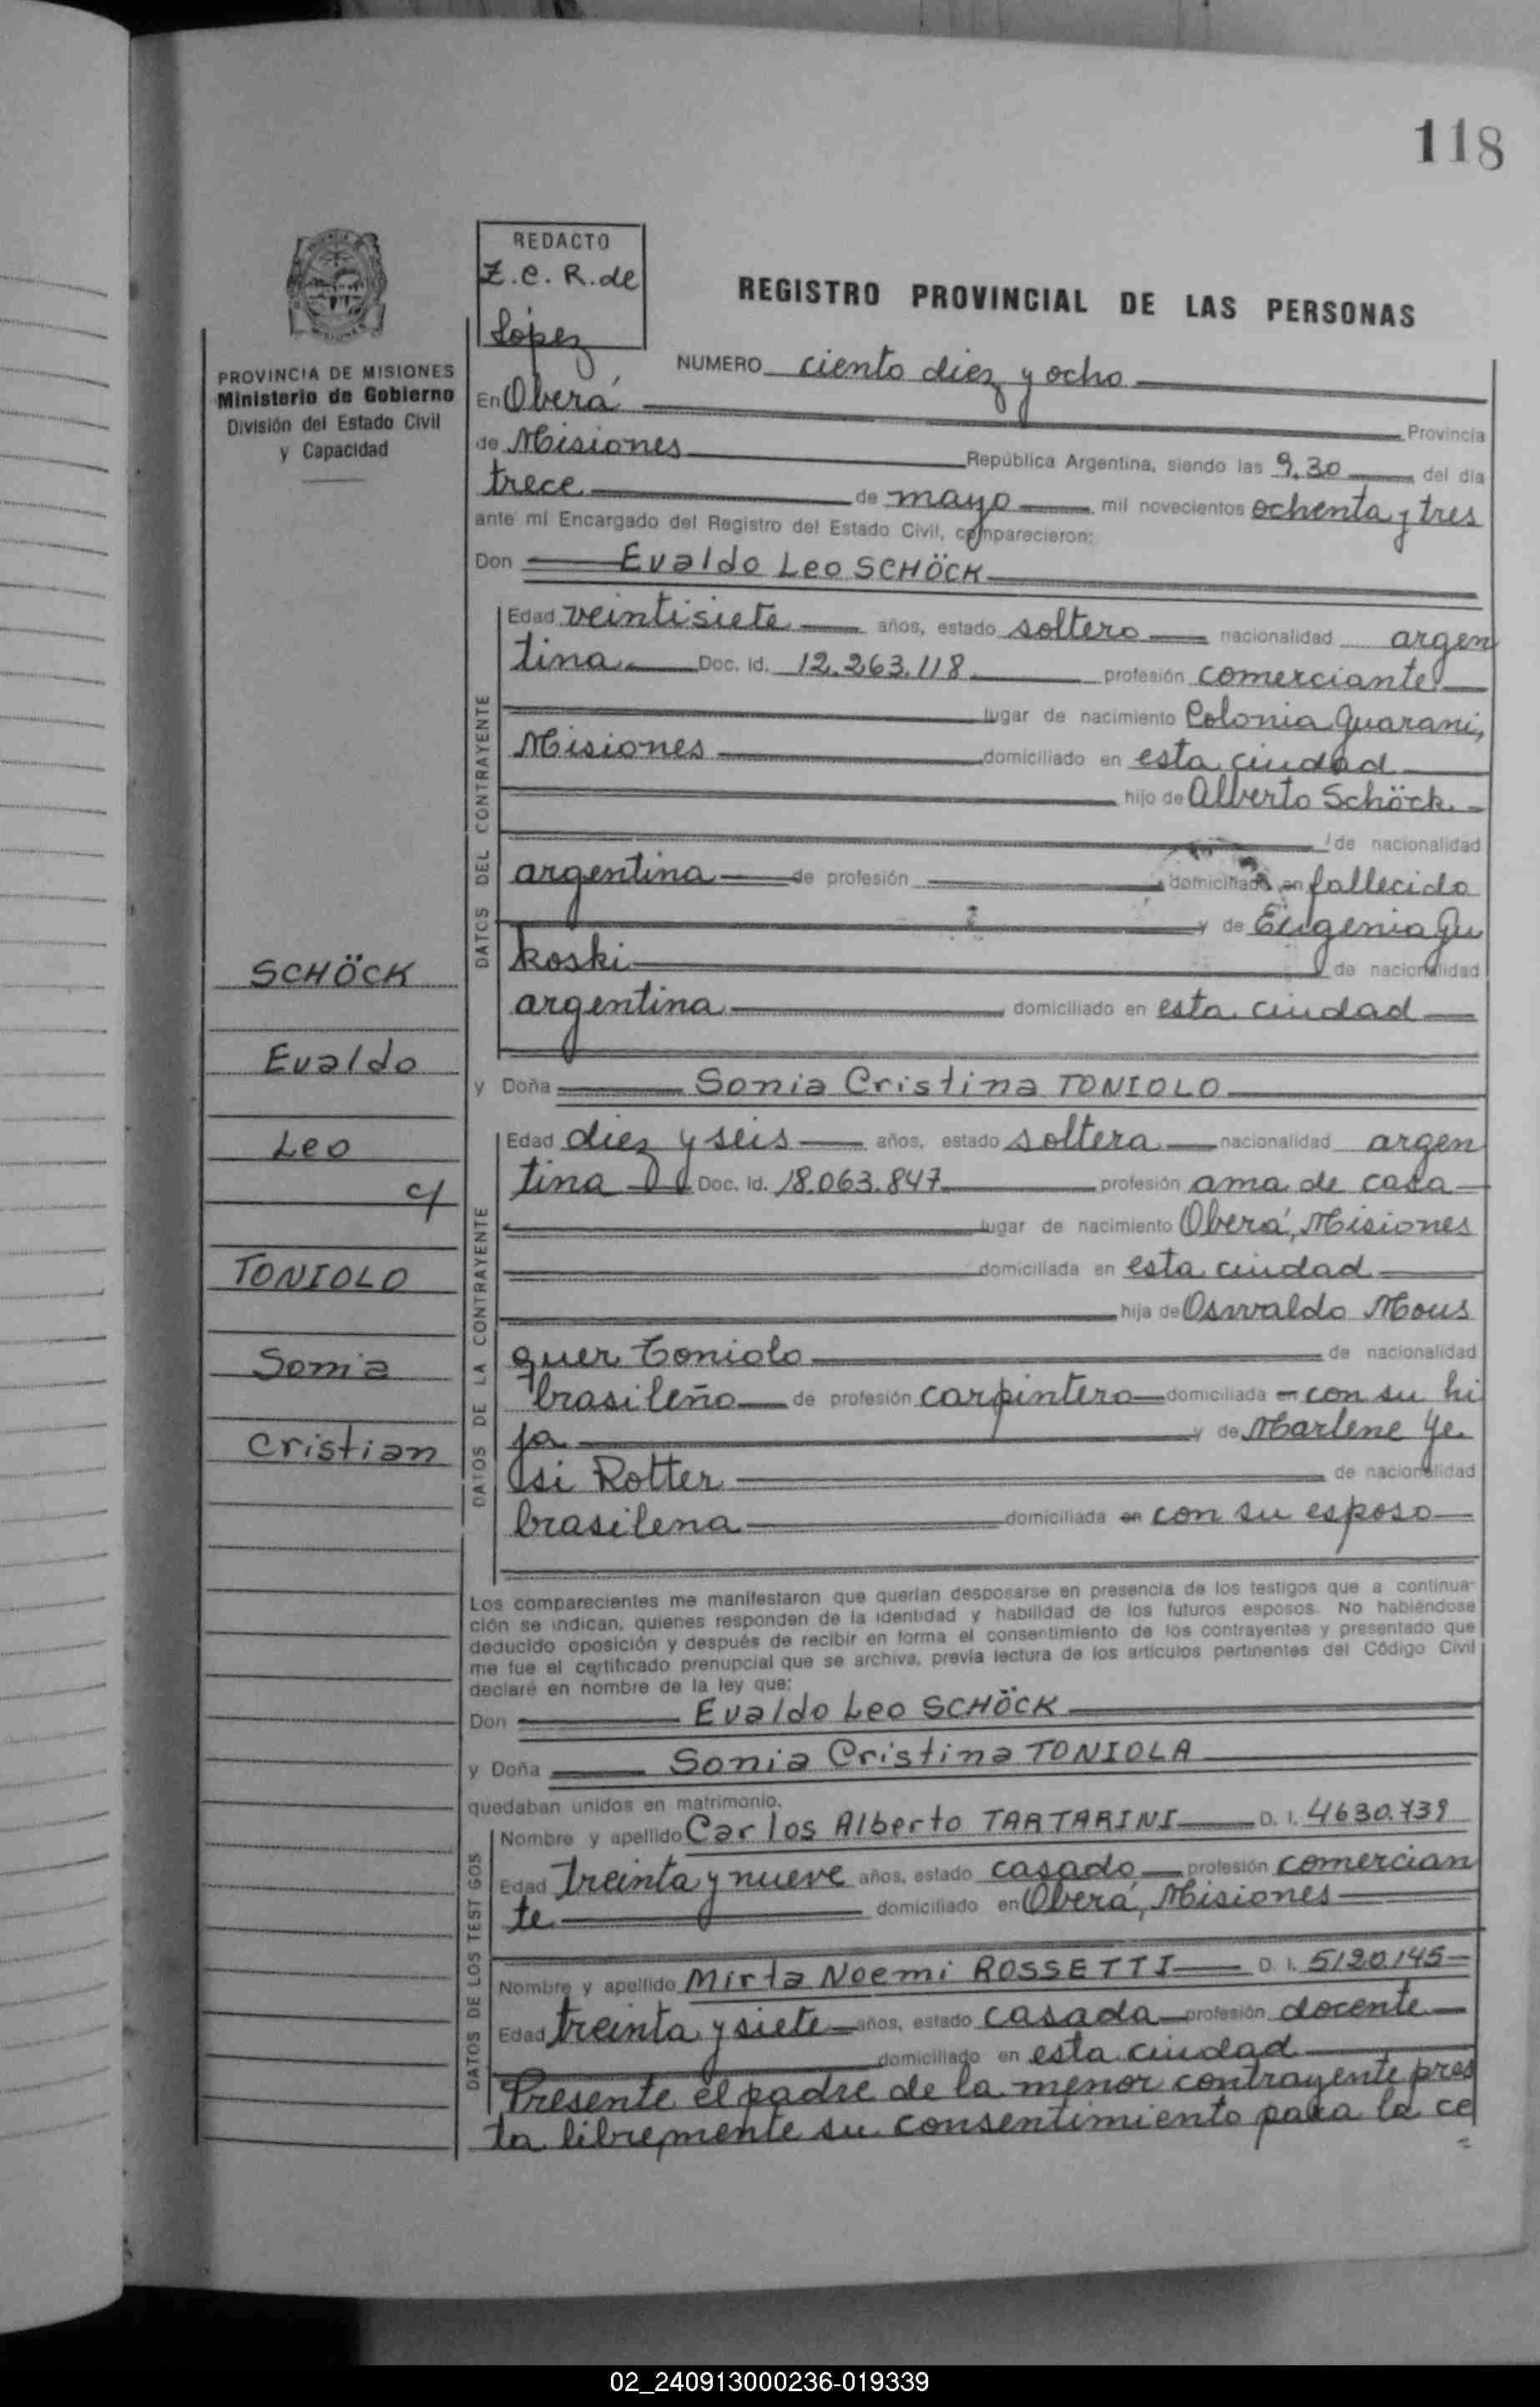 118
REDACTO
Z.C.R. de
López
REGISTRO PROVINCIAL DE LAS PERSONAS
PROVINCIA DE MISIONES
Ministerio de Gobierno
División del Estado Civil
y Capacidad
NUMERO ciento diez y ocho
En Oberá
Provincia
de Misiones República Argentina, siendo las 9,30 del día
trece de mayo mil novecientos ochenta y tres
ante mí Encargado del Registro del Estado Civil, comparecieron:
Don Evaldo Leo SCHÖCK
DATOS DEL CONTRAYENTE
Edad veintisiete años, estado soltero nacionalidad argen
tina Doc. Id. 12.263.118 profesión comerciante
lugar de nacimiento Colonia Guaraní,
Misiones domiciliado en esta ciudad
hijo de Alberto Schöck
de nacionalidad
argentina de profesión domiciliado en fallecido
y de Eugenia Gu
koski de nacionalidad
argentina domiciliado en esta ciudad
y Doña Sonia Cristina TONIOLO
DATOS DE LA CONTRAYENTE
Edad diez y seis años, estado soltera nacionalidad argen
tina Doc. Id. 18.063.847 profesión ama de casa
lugar de nacimiento Oberá, Misiones
domiciliada en esta ciudad
hija de Osvaldo Mous
quer Toniolo de nacionalidad
brasileño de profesión carpintero domiciliada en con su hi
ja y de Marlene Ye
si Rotter de nacionalidad
brasilena domiciliada en con su esposo
SCHÖCK
Evaldo
Leo
c/
TONIOLO
Sonia
Cristian
Los comparecientes me manifestaron que querían desposarse en presencia de los testigos que a continua-
ción se indican, quienes responden de la identidad y habilidad de los futuros esposos. No habiéndose
deducido oposición y después de recibir en forma el consentimiento de los contrayentes y presentado que
me fue el certificado prenupcial que se archiva, previa lectura de los artículos pertinentes del Código Civil
declaré en nombre de la ley que:
Don Evaldo Leo SCHÖCK
y Doña Sonia Cristina TONIOLA
quedaban unidos en matrimonio.
DATOS DE LOS TESTIGOS
Nombre y apellido Carlos Alberto TARTARINI D. I. 4630.739
Edad treinta y nueve años, estado casado profesión comercian
te domiciliado en Oberá, Misiones
Nombre y apellido Mirta Noemi ROSSETTI D. I. 5120.145
Edad treinta y siete años, estado casada profesión docente
domiciliado en esta ciudad
Presente el padre de la menor contrayente pres
ta libremente su consentimiento para la ce
02_240913000236-019339